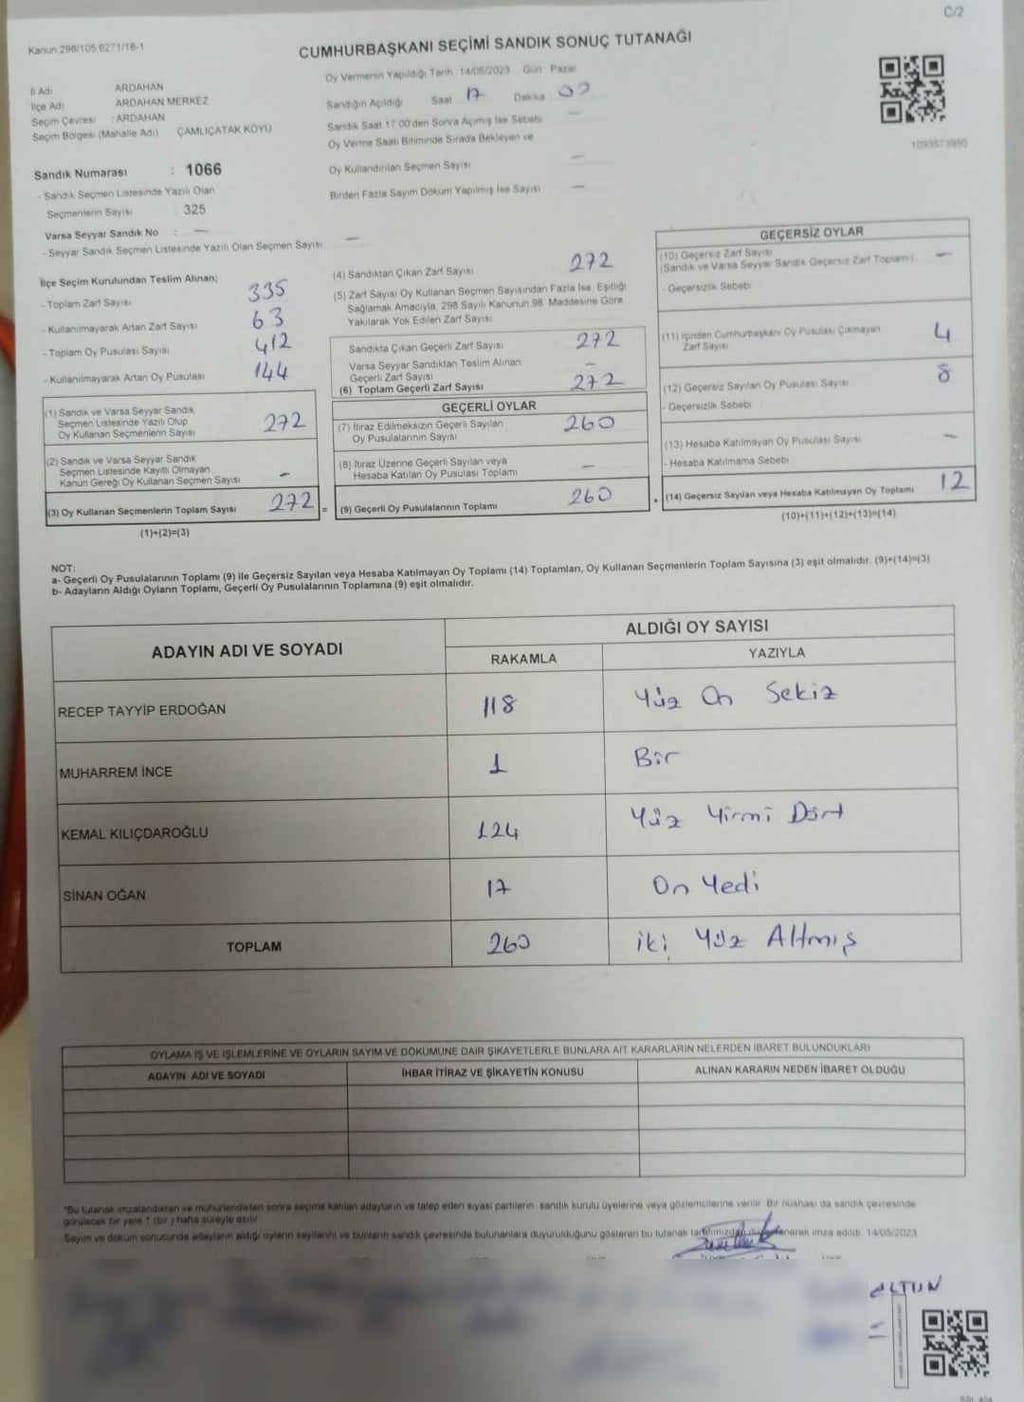 C/2
Kanun:298/105 6271/18-1
CUMHURBAŞKANI SEÇİMİ SANDIK SONUÇ TUTANAĞI
İl Adı : ARDAHAN
İlçe Adı : ARDAHAN MERKEZ
Seçim Çevresi : ARDAHAN
Seçim Bölgesi (Mahalle Adı) : ÇAMLIÇATAK KÖYÜ
Sandık Numarası : 1066
- Sandık Seçmen Listesinde Yazılı Olan
Seçmenlerin Sayısı : 325
Varsa Seyyar Sandık No : —
- Seyyar Sandık Seçmen Listesinde Yazılı Olan Seçmen Sayısı : —
Oy Vermenin Yapıldığı Tarih :14/05/2023 Gün : Pazar
Sandığın Açıldığı Saat 17 Dakika 00
Sandık Saat 17:00'den Sonra Açılmış İse Sebebi —
Oy Verme Saati Bitiminde Sırada Bekleyen ve
Oy Kullandırılan Seçmen Sayısı —
Birden Fazla Sayım Döküm Yapılmış İse Sayısı —
İlçe Seçim Kurulundan Teslim Alınan;
- Toplam Zarf Sayısı 335
- Kullanılmayarak Artan Zarf Sayısı 63
- Toplam Oy Pusulası Sayısı 412
- Kullanılmayarak Artan Oy Pusulası 144
(1) Sandık ve Varsa Seyyar Sandık
Seçmen Listesinde Yazılı Olup
Oy Kullanan Seçmenlerin Sayısı 272
(2) Sandık ve Varsa Seyyar Sandık
Seçmen Listesinde Kayıtlı Olmayan
Kanun Gereği Oy Kullanan Seçmen Sayısı -
(3) Oy Kullanan Seçmenlerin Toplam Sayısı 272 =
(1)+(2)=(3)
(4) Sandıktan Çıkan Zarf Sayısı 272
(5) Zarf Sayısı Oy Kullanan Seçmen Sayısından Fazla İse, Eşitliği
Sağlamak Amacıyla, 298 Sayılı Kanunun 98. Maddesine Göre
Yakılarak Yok Edilen Zarf Sayısı
Sandıkta Çıkan Geçerli Zarf Sayısı 272
Varsa Seyyar Sandıktan Teslim Alınan
Geçerli Zarf Sayısı —
(6) Toplam Geçerli Zarf Sayısı 272
GEÇERLİ OYLAR
(7) İtiraz Edilmeksizin Geçerli Sayılan
Oy Pusulalarının Sayısı 260
(8) İtiraz Üzerine Geçerli Sayılan veya
Hesaba Katılan Oy Pusulası Toplamı —
(9) Geçerli Oy Pusulalarının Toplamı 260 +
GEÇERSİZ OYLAR
(10) Geçersiz Zarf Sayısı
(Sandık ve Varsa Seyyar Sandık Geçersiz Zarf Toplamı) —
- Geçersizlik Sebebi
(11) İçinden Cumhurbaşkanı Oy Pusulası Çıkmayan
Zarf Sayısı 4
(12) Geçersiz Sayılan Oy Pusulası Sayısı 8
- Geçersizlik Sebebi
(13) Hesaba Katılmayan Oy Pusulası Sayısı —
- Hesaba Katılmama Sebebi
(14) Geçersiz Sayılan veya Hesaba Katılmayan Oy Toplamı 12
(10)+(11)+(12)+(13)=(14)
NOT:
a- Geçerli Oy Pusulalarının Toplamı (9) ile Geçersiz Sayılan veya Hesaba Katılmayan Oy Toplamı (14) Toplamları, Oy Kullanan Seçmenlerin Toplam Sayısına (3) eşit olmalıdır. (9)+(14)=(3)
b- Adayların Aldığı Oyların Toplamı, Geçerli Oy Pusulalarının Toplamına (9) eşit olmalıdır.
ADAYIN ADI VE SOYADI ALDIĞI OY SAYISI
RAKAMLA YAZIYLA
RECEP TAYYİP ERDOĞAN 118 Yüz On Sekiz
MUHARREM İNCE 1 Bir
KEMAL KILIÇDAROĞLU 124 Yüz Yirmi Dört
SİNAN OĞAN 17 On Yedi
TOPLAM 260 iki Yüz Altmış
OYLAMA İŞ VE İŞLEMLERİNE VE OYLARIN SAYIM VE DÖKÜMÜNE DAİR ŞİKAYETLERLE BUNLARA AİT KARARLARIN NELERDEN İBARET BULUNDUKLARI
ADAYIN ADI VE SOYADI İHBAR İTİRAZ VE ŞİKAYETİN KONUSU ALINAN KARARIN NEDEN İBARET OLDUĞU
*Bu tutanak imzalandıktan ve mühürlendikten sonra seçime katılan adayların ve talep eden siyasi partilerin sandık kurulu üyelerine veya gözlemcilerine verilir. Bir nüshası da sandık çevresinde
görülecek bir yere 1 (bir) hafta süreyle asılır.
Sayım ve döküm sonucunda adayların aldığı oyların sayılarını ve bunların sandık çevresinde bulunanlara duyurulduğunu gösteren bu tutanak imza edildi. 14/05/2023
ALTUN